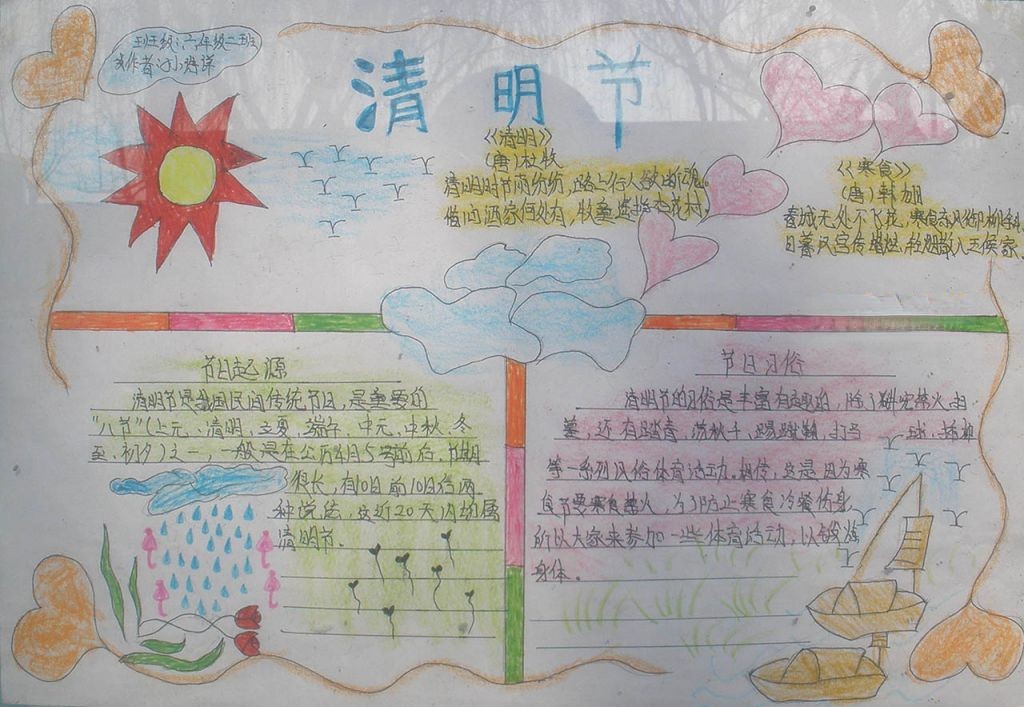 班级:六年级二班
清明节
《清明》
(唐)杜牧
清明时节雨纷纷,路上行人欲断魂。
借问酒家何处有,牧童遥指杏花村。
《寒食》
(唐)韩翃
春城无处不飞花,寒食东风御柳斜
日暮汉宫传蜡烛,轻烟散入五侯家
节日起源
清明节是我国民间传统节日,是重要的
"八节"(上元、清明、立夏、端午、中元、中秋、冬
至、初夕)之一,一般是在公历4月5号前后,节期
很长,有10日前10日后两
种说法,这近20天内均属
清明节.
节日习俗
清明节的习俗是丰富有趣的,除了讲究禁火、扫
墓,还有踏青、荡秋千、踢蹴鞠,打马 球、插柳
等一系列风俗体育活动.相传,这是因为寒
食节要寒食禁火,为了防止寒食冷餐伤身,
所以大家来参加一些体育活动,以锻炼
身体。